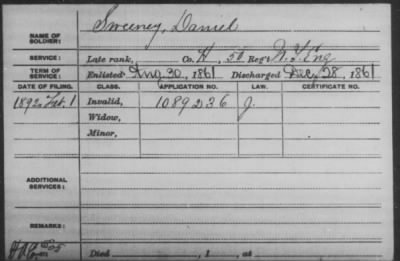 Sweeney, Daniel
NAME OF SOLDIER:
SERVICE: Late rank, Co. H, 50 Reg't N.Y. Eng
TERM OF SERVICE: Enlisted Aug. 30, 1861 Discharged Dec. 28, 1861
DATE OF FILING. CLASS. APPLICATION NO. LAW. CERTIFICATE NO.
1892 Feb. 1 Invalid, 1089236 J.
Widow,
Minor,
ADDITIONAL SERVICES:
REMARKS:
Died , 1 , at